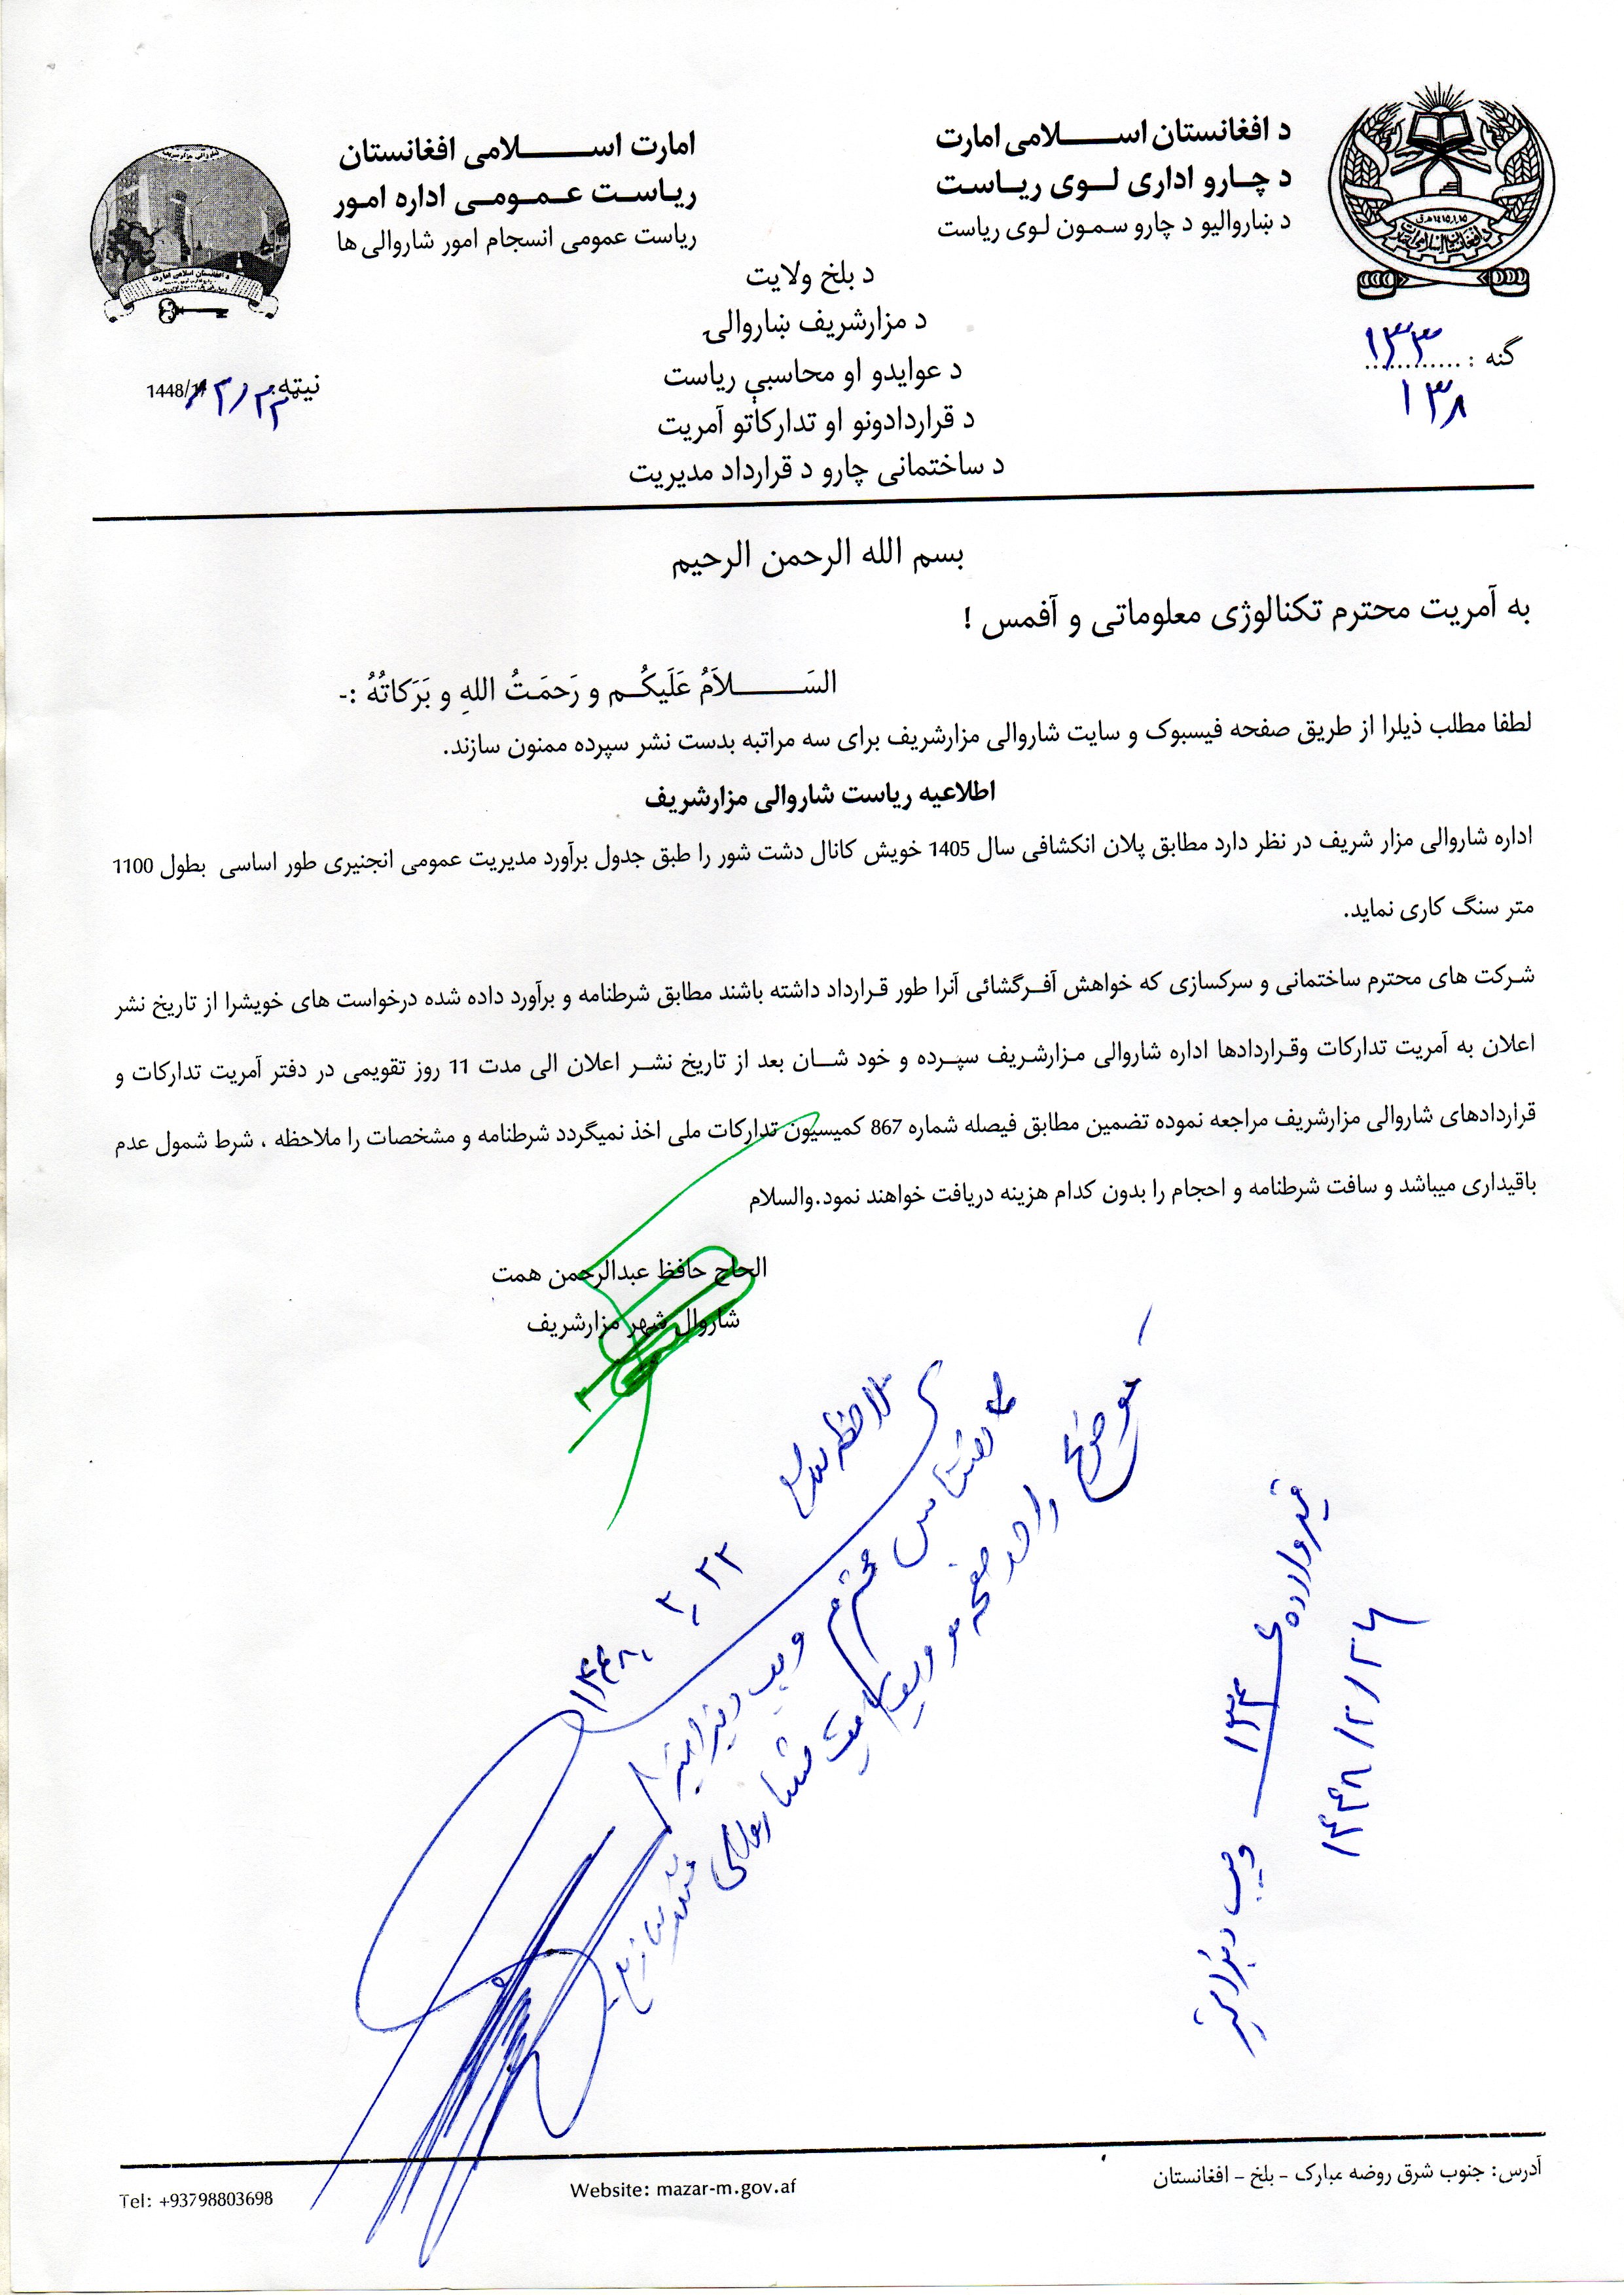 د افغانستان اسـلامی امارت
د چـارو اداری لـوی ریـاسـت
د ښاروالیو د چارو سمـون لـوی ریاست
امارت اسـلامی افغانستان
ریـاسـت عـمـومـی اداره امـور
ریاست عمومی انسجام امور شاروالی ها
د بلخ ولایت
د مزارشریف ښاروالۍ
د عوایدو او محاسبې ریاست
د قراردادونو او تدارکاتو آمریت
د ساختمانی چارو د قرارداد مدیریت
گنه : ۱۳۳
۱۳۸
نیټه: 1448/
بسم الله الرحمن الرحیم
به آمریت محترم تکنالوژی معلوماتی و آفمس !
السَـلاَمُ عَلَیکُـم و رَحمَتُ اللهِ و بَرَکاتُهُ :-
لطفا مطلب ذیلرا از طریق صفحه فیسبوک و سایت شاروالی مزارشریف برای سه مراتبه بدست نشر سپرده ممنون سازند.
اطلاعیه ریاست شاروالی مزارشریف
اداره شاروالی مزار شریف در نظر دارد مطابق پلان انکشافی سال 1405 خویش کانال دشت شور را طبق جدول برآورد مدیریت عمومی انجنیری طور اساسی بطول 1100
متر سنگ کاری نماید.
شـرکت های محترم ساختمانی و سرکسازی که خواهش آفـرگشائی آنرا طور قـرارداد داشته باشند مطابق شرطنامه و برآورد داده شده درخواست های خویشرا از تاریخ نشر
اعلان به آمریت تدارکات وقـراردادها اداره شاروالی مـزارشـریف سپـرده و خود شـان بعد از تاریخ نشـر اعلان الی مدت 11 روز تقویمی در دفتر آمریت تدارکات و
قراردادهای شاروالی مزارشریف مراجعه نموده تضمین مطابق فیصله شماره 867 کمیسیون تدارکات ملی اخذ نمیگردد شرطنامه و مشخصات را ملاحظه ، شرط شمول عدم
باقیداری میباشد و سافت شرطنامه و احجام را بدون کدام هزینه دریافت خواهند نمود.والسلام
الحاج حافظ عبدالرحمن همت
شاروال شهر مزارشریف
ملاحظه شد
محترم ویب دیزاینر
موضوع را در صفحه و ویب سایت شاروالی
نشر
قید وارده
۱۳۴
۱۴۴۸/۲/۲۶
آدرس: جنوب شرق روضه مبارک - بلخ - افغانستان
Website: mazar-m.gov.af
Tel: +93798803698